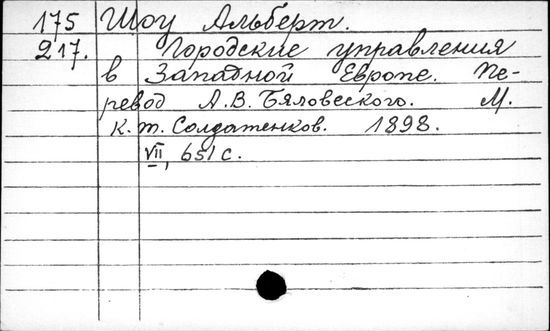 175 Шоу Альберт.
217. Городские управления
в Западной Европе. Пе-
ревод А.В. Бяловеского. М.
К.т. Солдатенков. 1898.
VII, 651 с.